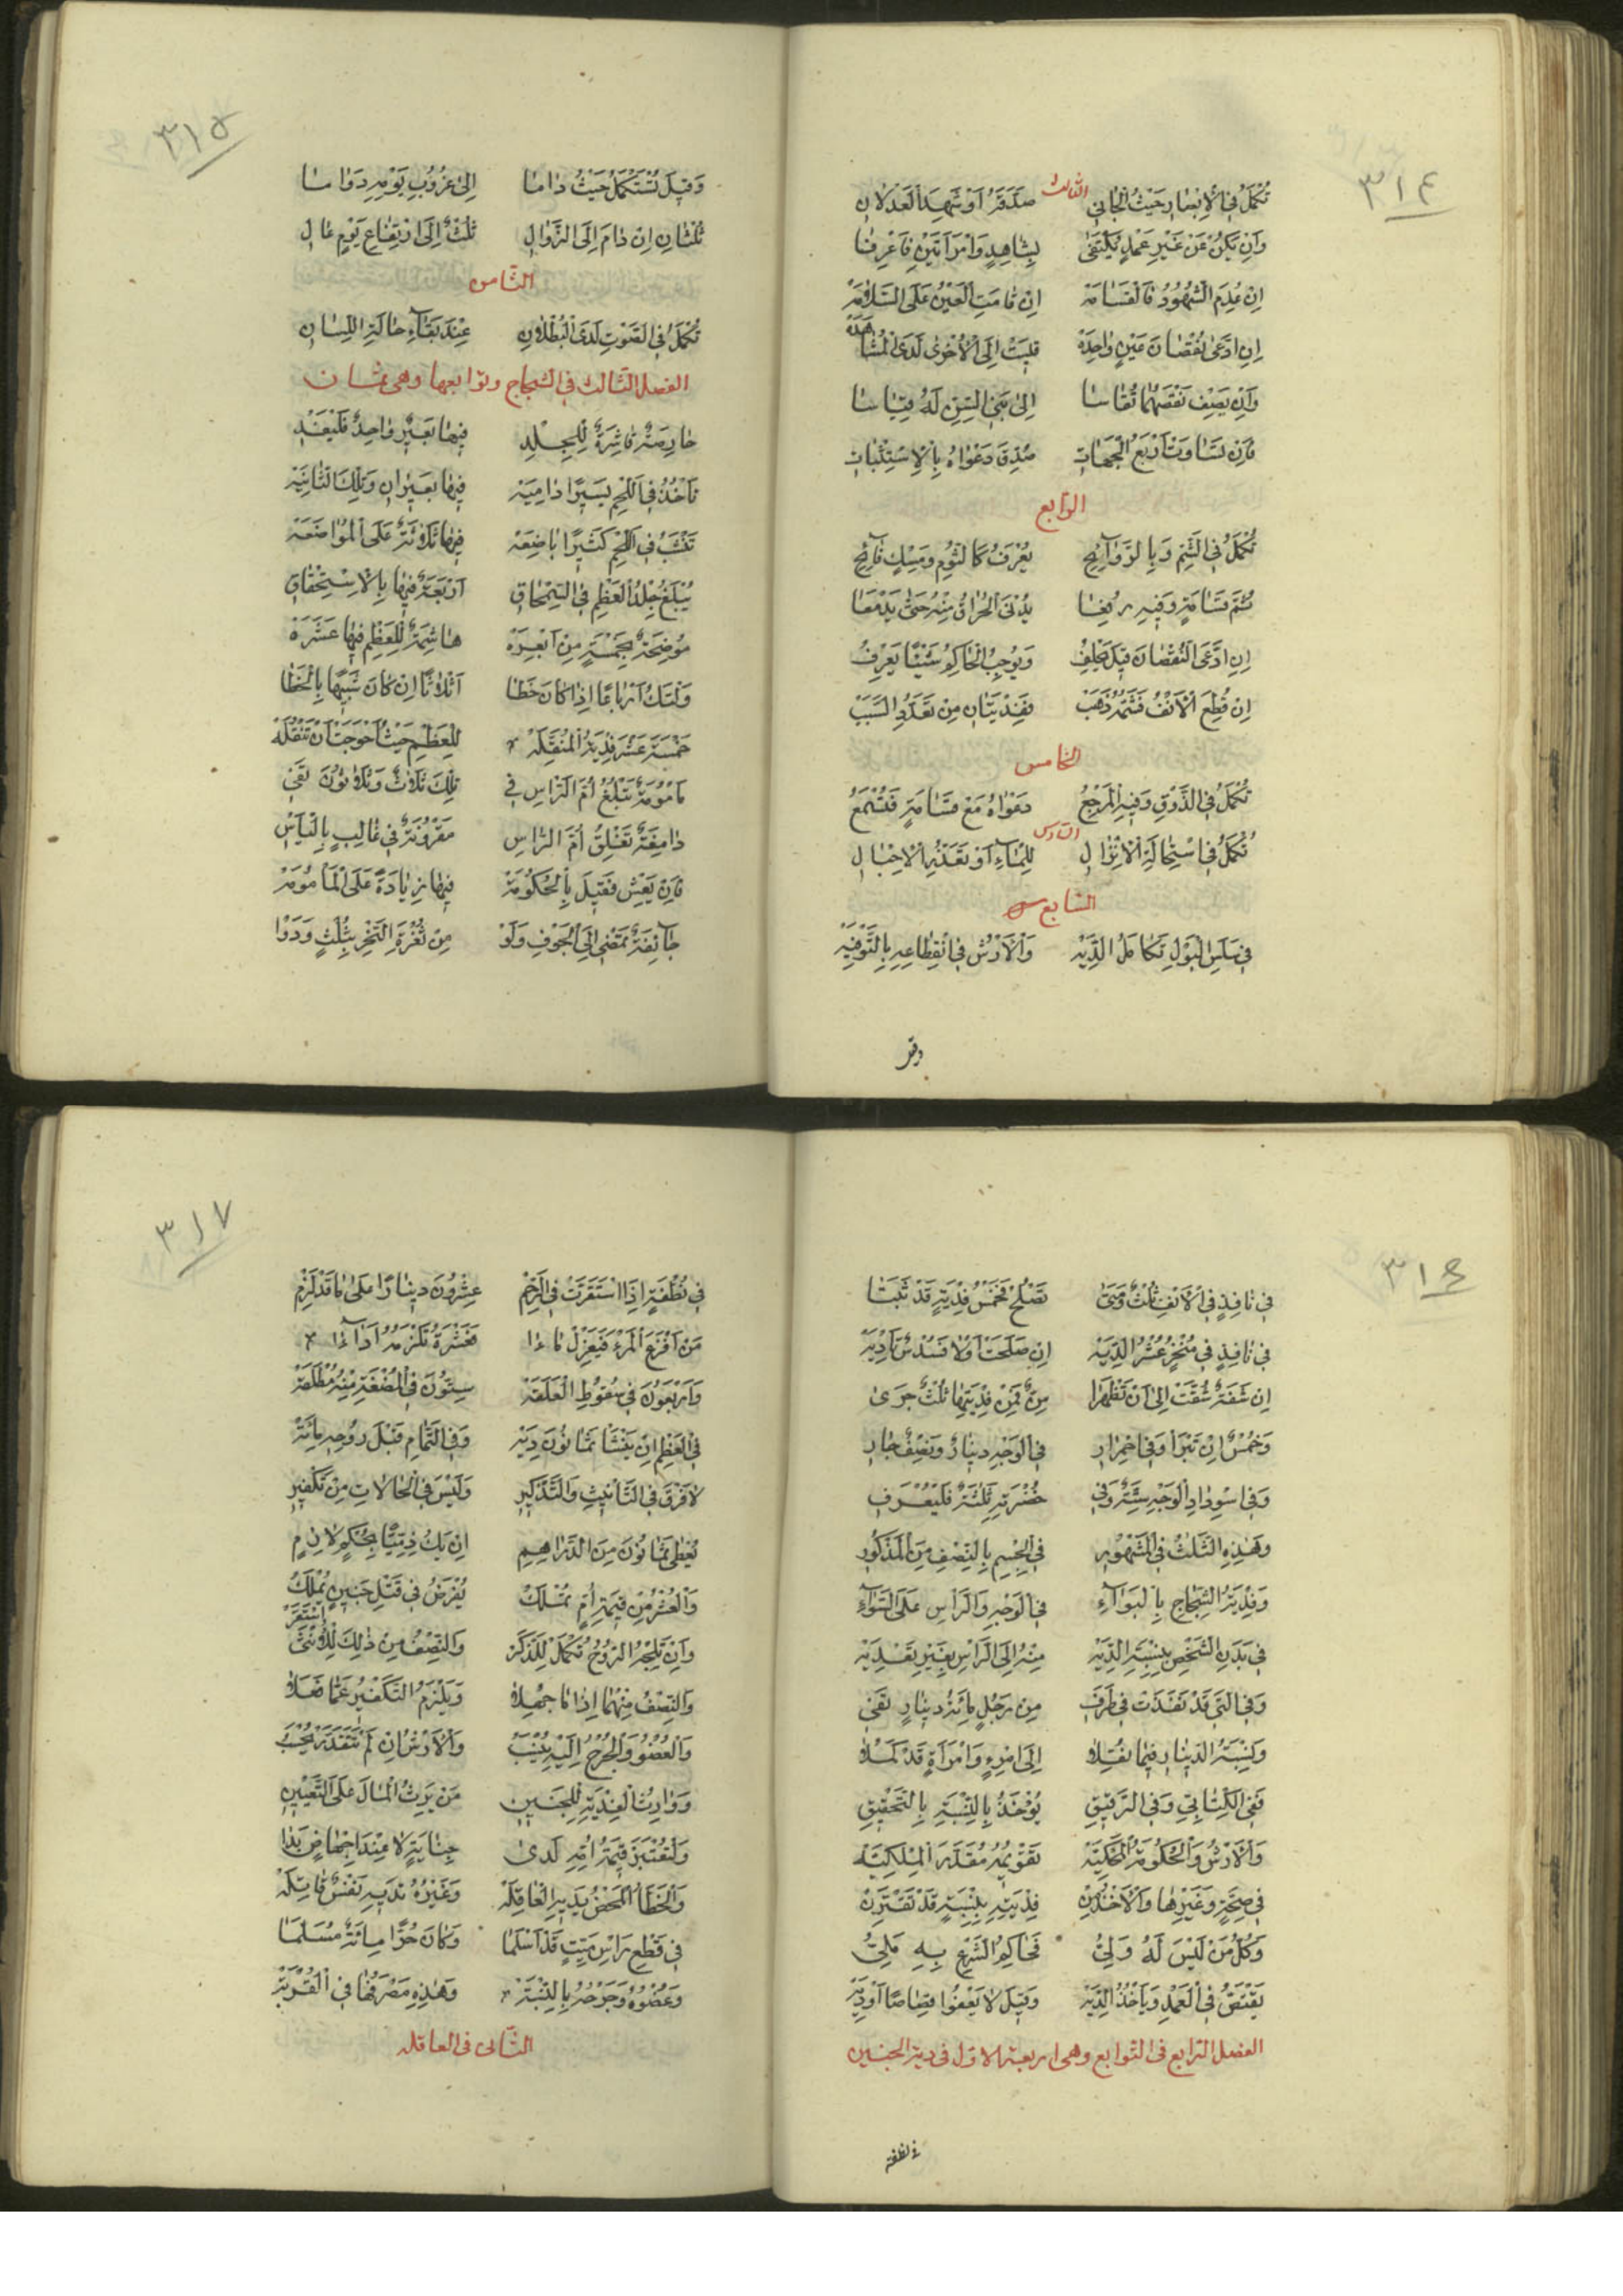 ٣١٤
الثالث
تُكْمَلُ فِي الْإِبْصَارِ حَيْثُ الْجَانِي صَدَّقَهُ أَوْ شَهِدَ الْعَدْلَانِ
وَإِنْ يَكُنْ عَنْ غَيْرِ عَمْدٍ يُكْتَفَى بِشَاهِدٍ وَامْرَأَتَيْنِ فَاعْرِفَا
إِنْ عُدِمَ الشُّهُودُ فَالْقَسَامَهْ إِنْ قَامَتِ الْعَيْنُ عَلَى السَّلَامَهْ
إِنِ ادَّعَى نُقْصَانَ عَيْنٍ وَاحِدَهْ قِيسَتْ إِلَى الْأُخْرَى لَدَى الْمُشَاهَدَهْ
وَإِنْ يَصِفْ نَقْصَهُمَا تُقَاسَا إِلَى بَنِي السِّنِّ لَهُ قِيَاسَا
فَإِنْ تَسَاوَتْ أَرْبَعُ الْجِهَاتِ صُدِّقَ دَعْوَاهُ بِالِاسْتِثْبَاتِ
الرابع
تُكْمَلُ فِي الشَّمِّ وَبِالرَّوَائِحِ يُعْرَفُ كَالثُّومِ وَمِسْكٍ فَائِحِ
ثُمَّ قَسَامَةٍ وَفِيهِ رُفِعَا يُدْنَى الْحُرَاقُ مِنْهُ حَتَّى يَدْمَعَا
إِنِ ادَّعَى النُّقْصَانَ قِيلَ يَحْلِفُ وَيُوجِبُ الْحَاكِمُ شَيْئًا يَعْرِفُ
إِنْ قُطِعَ الْأَنْفُ فَشَمُّهُ ذَهَبْ فَفِدْيَتَانِ مِنْ تَعَدُّدِ السَّبَبْ
الخامس
تُكْمَلُ فِي الذَّوْقِ وَفِيهِ الْمَرْجِعُ دَعْوَاهُ مَعْ قَسَامَةٍ فَتُسْمَعُ
السادس
تُكْمَلُ فِي اسْتِحَالَةِ الْإِنْزَالِ لِلْمَاءِ أَوْ تَعَذُّرِ الْإِحْبَالِ
السابع
فِي سَلَسِ الْبَوْلِ تَكَامَلُ الدِّيَهْ وَالْأَرْشُ فِي انْقِطَاعِهِ بِالتَّوْفِيَهْ
وقيل
٣١٥
وَقِيلَ تُسْتَكْمَلُ حَيْثُ دَامَا إِلَى غُرُوبِ يَوْمِهِ دَوَامَا
ثُلْثَانِ إِنْ دَامَ إِلَى الزَّوَالِ ثُلْثٌ إِلَى ارْتِفَاعِ يَوْمٍ عَالِ
الثامن
تُكْمَلُ فِي الصَّوْتِ لَدَى الْبُطْلَانِ عِنْدَ بَقَاءِ حَالَةِ اللِّسَانِ
الفصل الثالث في الشجاج وتوابعها وهي ثمان
حَارِصَةٌ قَاشِرَةٌ لِلْجِلْدِ فِيهَا بَعِيرٌ وَاحِدٌ فَلْيَفْدِ
تَأْخُذُ فِي اللَّحْمِ يَسِيرًا دَامِيَهْ فِيهَا بَعِيرَانِ وَتِلْكَ الثَّانِيَهْ
تَنْشَبُ فِي اللَّحْمِ كَثِيرًا بَاضِعَهْ فِيهَا ثَلَاثَةٌ عَلَى الْمُوَاضَعَهْ
يُبْلَغُ جِلْدُ الْعَظْمِ فِي السِّمْحَاقِ أَرْبَعَةٌ فِيهَا بِالِاسْتِحْقَاقِ
مُوضِحَةٌ بِخَمْسَةٍ مِنْ أَبْعِرَهْ هَاشِمَةٌ لِلْعَظْمِ فِيهَا عَشَرَهْ
وَلْتَكُ أَرْبَاعًا إِذَا كَانَ خَطَا أَثْلَاثًا إِنْ كَانَ شَبِيهًا بِالْخَطَا
خَمْسَةَ عَشْرَ فِدْيَةُ الْمُنَقِّلَهْ لِلْعَظْمِ حَيْثُ أَحْوَجَتْ أَنْ تَنْقُلَهْ
مَأْمُومَةٌ تَبْلُغُ أُمَّ الرَّأْسِ فِي تِلْكَ ثَلَاثٌ وَثَلَاثُونَ تَفِي
دَامِغَةٌ تَفْلِقُ أُمَّ الرَّاسِ مَقْرُونَةٌ فِي غَالِبٍ بِالْيَأْسِ
فَإِنْ يَعِشْ فَقِيلَ بِالْحُكُومَهْ فِيهَا زِيَادَةً عَلَى الْمَأْمُومَهْ
جَائِفَةٌ تَمْضِي إِلَى الْجَوْفِ وَلَوْ مِنْ ثُغْرَةِ النَّحْرِ بِثُلْثٍ وَدَوْا
٣١٦
فِي نَافِذٍ فِي الْأَنْفِ ثُلْثٌ وَمَتَى تَصْلُحْ فَخُمْسُ فِدْيَةٍ قَدْ ثَبَتَا
فِي نَافِذٍ فِي مَنْخِرٍ عُشْرُ الدِّيَهْ إِنْ صَلَحَتْ أَوْ لَا فَسُدْسٌ تَأْدِيَهْ
إِنْ شَفَةٌ شُقَّتْ إِلَى أَنْ تَظْهَرَا سِنٌّ فَمِنْ فِدْيَتِهَا ثُلْثٌ جَرَى
وَخُمْسٌ إِنْ تَبْرَأْ وَفِي احْمِرَارِ فِي الْوَجْهِ دِينَارٌ وَنِصْفٌ جَارِ
وَفِي اسْوِدَادِ الْوَجْهِ سِتَّةٌ وَفِي خُضْرَتِهِ ثَلَثَةٌ فَلْيُعْرَفِ
وَهَذِهِ الثَّلَاثُ فِي الْمَشْهُورِ فِي الْجِسْمِ بِالنِّصْفِ مِنَ الْمَذْكُورِ
وَفِدْيَةُ الشِّجَاجِ بِالْبَوَاءِ فِي الْوَجْهِ وَالرَّأْسِ عَلَى السَّوَاءِ
فِي بَدَنِ الشَّخْصِ بِنِسْبَةِ الدِّيَهْ مِنْهُ إِلَى الرَّأْسِ بِغَيْرِ تَعْدِيَهْ
وَفِي الَّتِي قَدْ نَفَذَتْ فِي طَرَفِ مِنْ رَجُلٍ مِائَةُ دِينَارٍ تَفِي
وَنِسْبَةُ الدِّينَارِ فِيمَا نُقِلَا إِلَى امْرِءٍ وَامْرَأَةٍ قَدْ كَمُلَا
فَفِي الْكِتَابِيِّ وَفِي الرَّقِيقِ يُؤْخَذُ بِالنِّسْبَةِ بِالتَّحْقِيقِ
وَالْأَرْشُ وَالْحُكُومَةُ الْمَحْكِيَّهْ تَقْوِيمُهُ مُقَدَّرَ الْمِلْكِيَّهْ
فِي صِحَّةٍ وَغَيْرِهَا وَالْأَخْذُ مِنْ فِدْيَتِهِ بِنِسْبَةٍ قَدْ تَقْتَرِنْ
وَكُلُّ مَنْ لَيْسَ لَهُ وَلِيُّ فَحَاكِمُ الشَّرْعِ بِهِ مَلِيُّ
يَقْتَصُّ فِي الْعَمْدِ وَيَأْخُذُ الدِّيَهْ وَقِيلَ لَا يَعْفُوا قِصَاصًا أَوْ دِيَهْ
الفصل الرابع في التوابع وهي اربعة الاول في دية الجنين
في نطفة
٣١٧
فِي نُطْفَةٍ إِذَا اسْتَقَرَّتْ فِي الرَّحِمْ عِشْرُونَ دِينَارًا عَلَى مَا قَدْ لَزِمْ
مَنْ أَفْزَعَ الْمَرْءَ فَيَعْزِلْ مَاءَا فَعَشْرَةٌ تَلْزَمُهُ أَدَاءَا
وَأَرْبَعُونَ فِي سُقُوطِ الْعَلَقَهْ سِتُّونَ فِي الْمُضْغَةِ مِنْهُ مُطْلَقَهْ
فِي الْعَظْمِ إِنْ يَنْشَا ثَمَانُونَ دِيَهْ وَفِي التَّمَامِ قَبْلَ رُوحِهِ مِائَهْ
لَا فَرْقَ فِي التَّأْنِيثِ وَالتَّذْكِيرِ وَلَيْسَ فِي الْحَالَاتِ مِنْ تَكْفِيرِ
يُعْطَى ثَمَانُونَ مِنَ الدَّرَاهِمِ إِنْ يَكُ ذِمِّيًّا بِحُكْمٍ لَازِمِ
وَالْعُشْرُ مِنْ قِيمَةِ أُمٍّ تُمْلَكُ يُفْرَضُ فِي قَتْلِ جَنِينٍ يُمْلَكُ
وَإِنْ تَلِجْهُ الرُّوحُ تُكْمَلْ لِلذَّكَرْ وَالنِّصْفُ مِنْ ذَلِكَ لِلْأُنْثَى اسْتَقَرّْ
وَالنِّصْفُ مِنْهُمَا إِذَا مَا جُهِلَا وَيَلْزَمُ التَّكْفِيرُ عَمَّا فَعَلَا
وَالْعُضْوُ وَالْجُرْحُ إِلَيْهِ يُنْسَبُ وَالْأَرْشُ إِنْ لَمْ تَتَقَدَّرْ يُحْسَبُ
وَوَارِثُ الْفِدْيَةِ لِلْجَنِينِ مَنْ يَرِثُ الْمَالَ عَلَى التَّعْيِينِ
وَلْتُعْتَبَرْ قِيمَةُ أُمِّهِ لَدَى جِنَايَةٍ لَا عِنْدَ إِجْهَاضٍ بَدَا
وَالْخَطَأُ الْمَحْضُ يَدِيهِ الْعَاقِلَهْ وَغَيْرُهُ تَدِيهِ نَفْسٌ قَاتِلَهْ
فِي قَطْعِ رَأْسِ مَيِّتٍ قَدْ أَسْلَمَا وَكَانَ حُرًّا مِائَةٌ مُسَلَّمَا
وَعُضْوُهُ وَجُرْحُهُ بِالنِّسْبَهْ وَهَذِهِ مَصْرَفُهَا فِي الْقُرْبَهْ
الثاني في العاقله